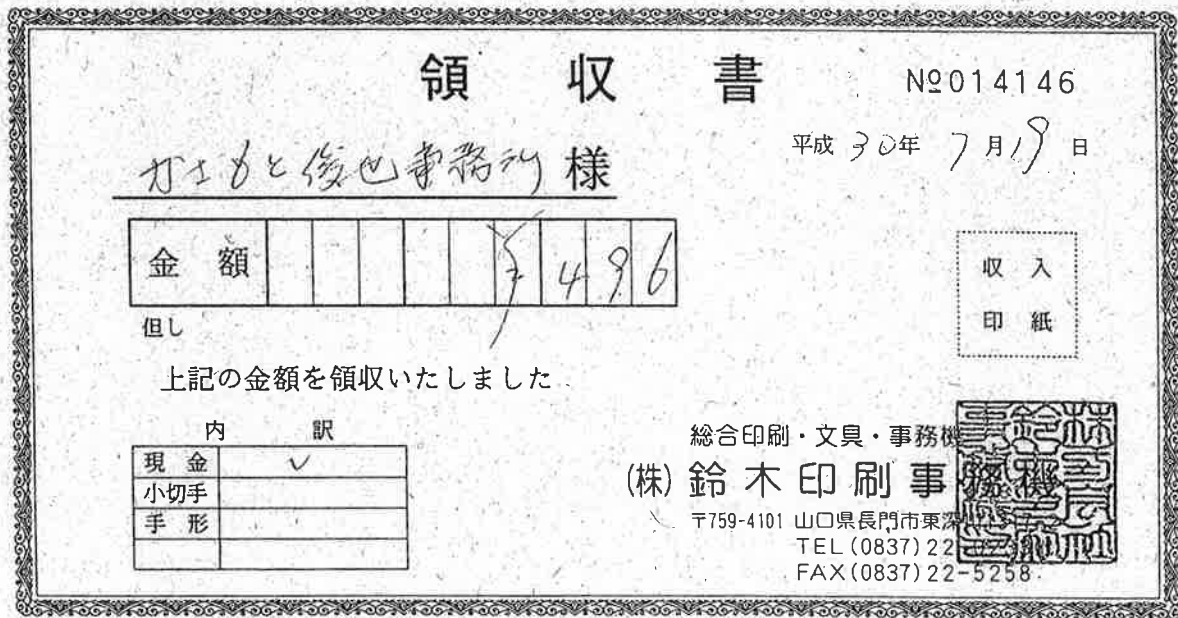 領収書
№014146
平成30年7月19日
かさもと俊也事務所 様
金額 ¥496
収入
印紙
但し
上記の金額を領収いたしました
内訳
現金 ✓
小切手
手形
総合印刷・文具・事務機
(株)鈴木印刷事務機
〒759-4101 山口県長門市東深
TEL(0837)22
FAX(0837)22-5258